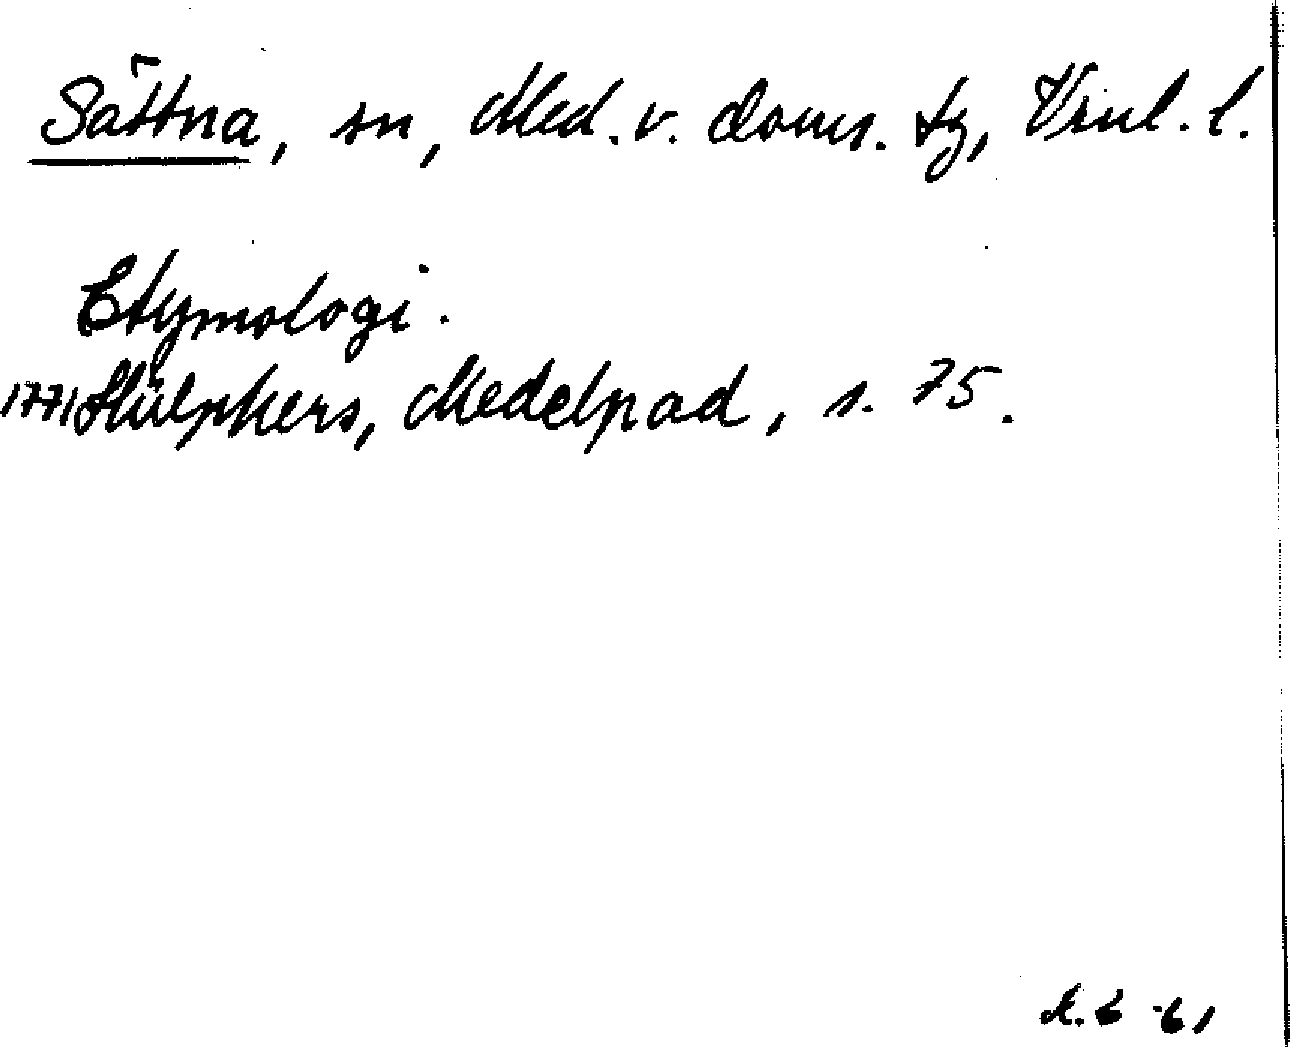 Sättna, sn, Med. v. doms. tg, Vnl. l.
Etymologi.
1771 Hülphers, Medelpad, s. 75.